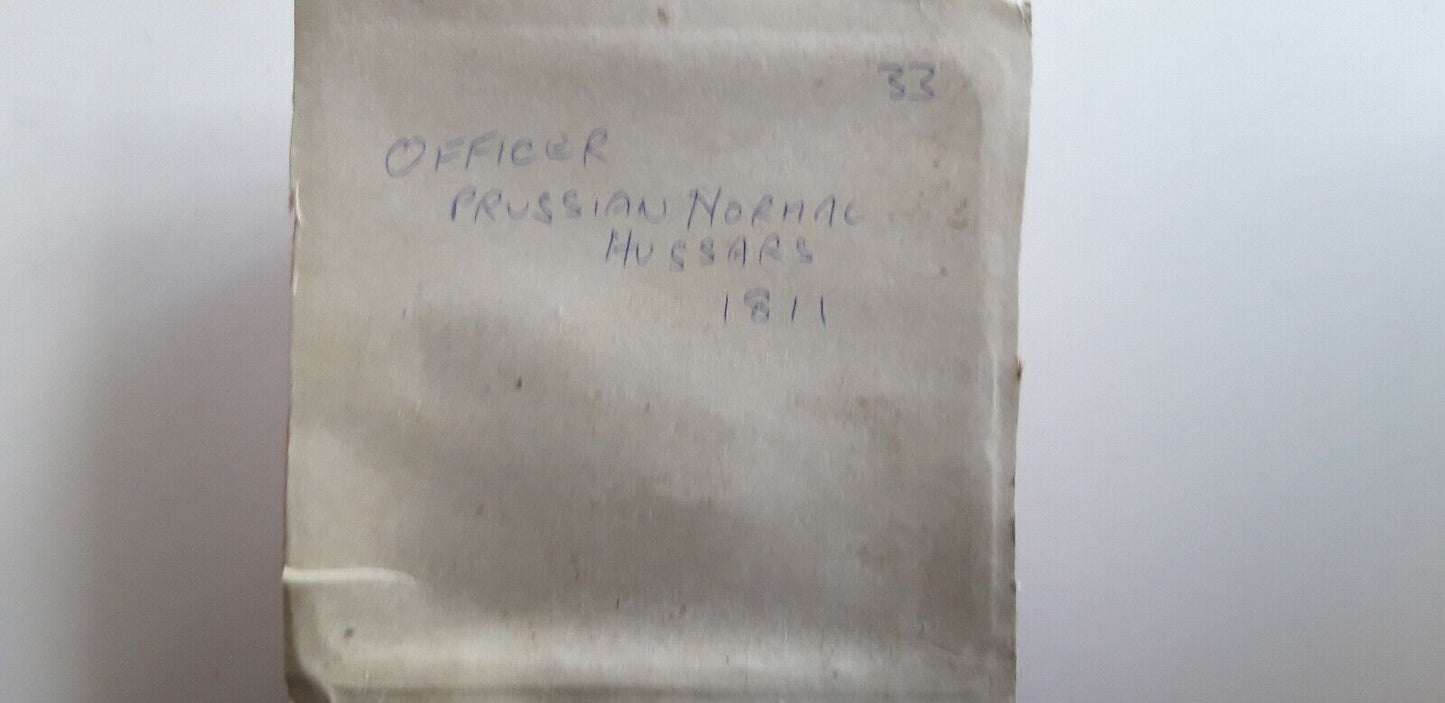 33
OFFICER
PRUSSIAN NORMAL
HUSSARS
1811